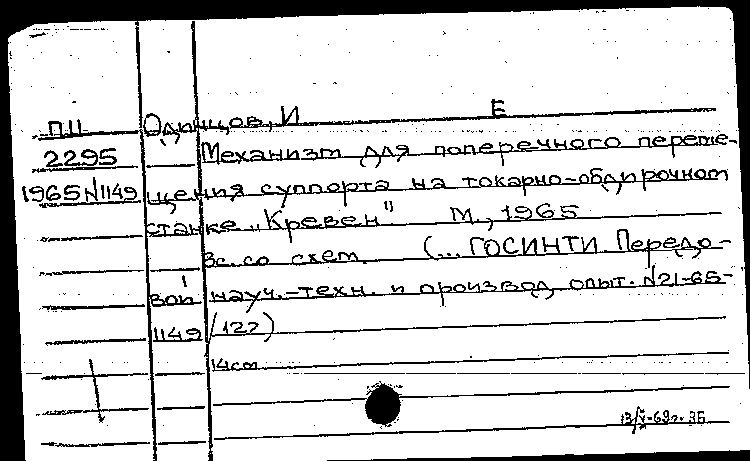 П11 Одинцов, И Е
2295 Механизм для поперечного переме-
1965 №1149 щения суппорта на токарно-обдирочном
станке „Кревен" М., 1965
3с. со схем. (... ГОСИНТИ Передо-
вой науч.-техн. и производ. опыт. №21-65-
1149/122)
14см